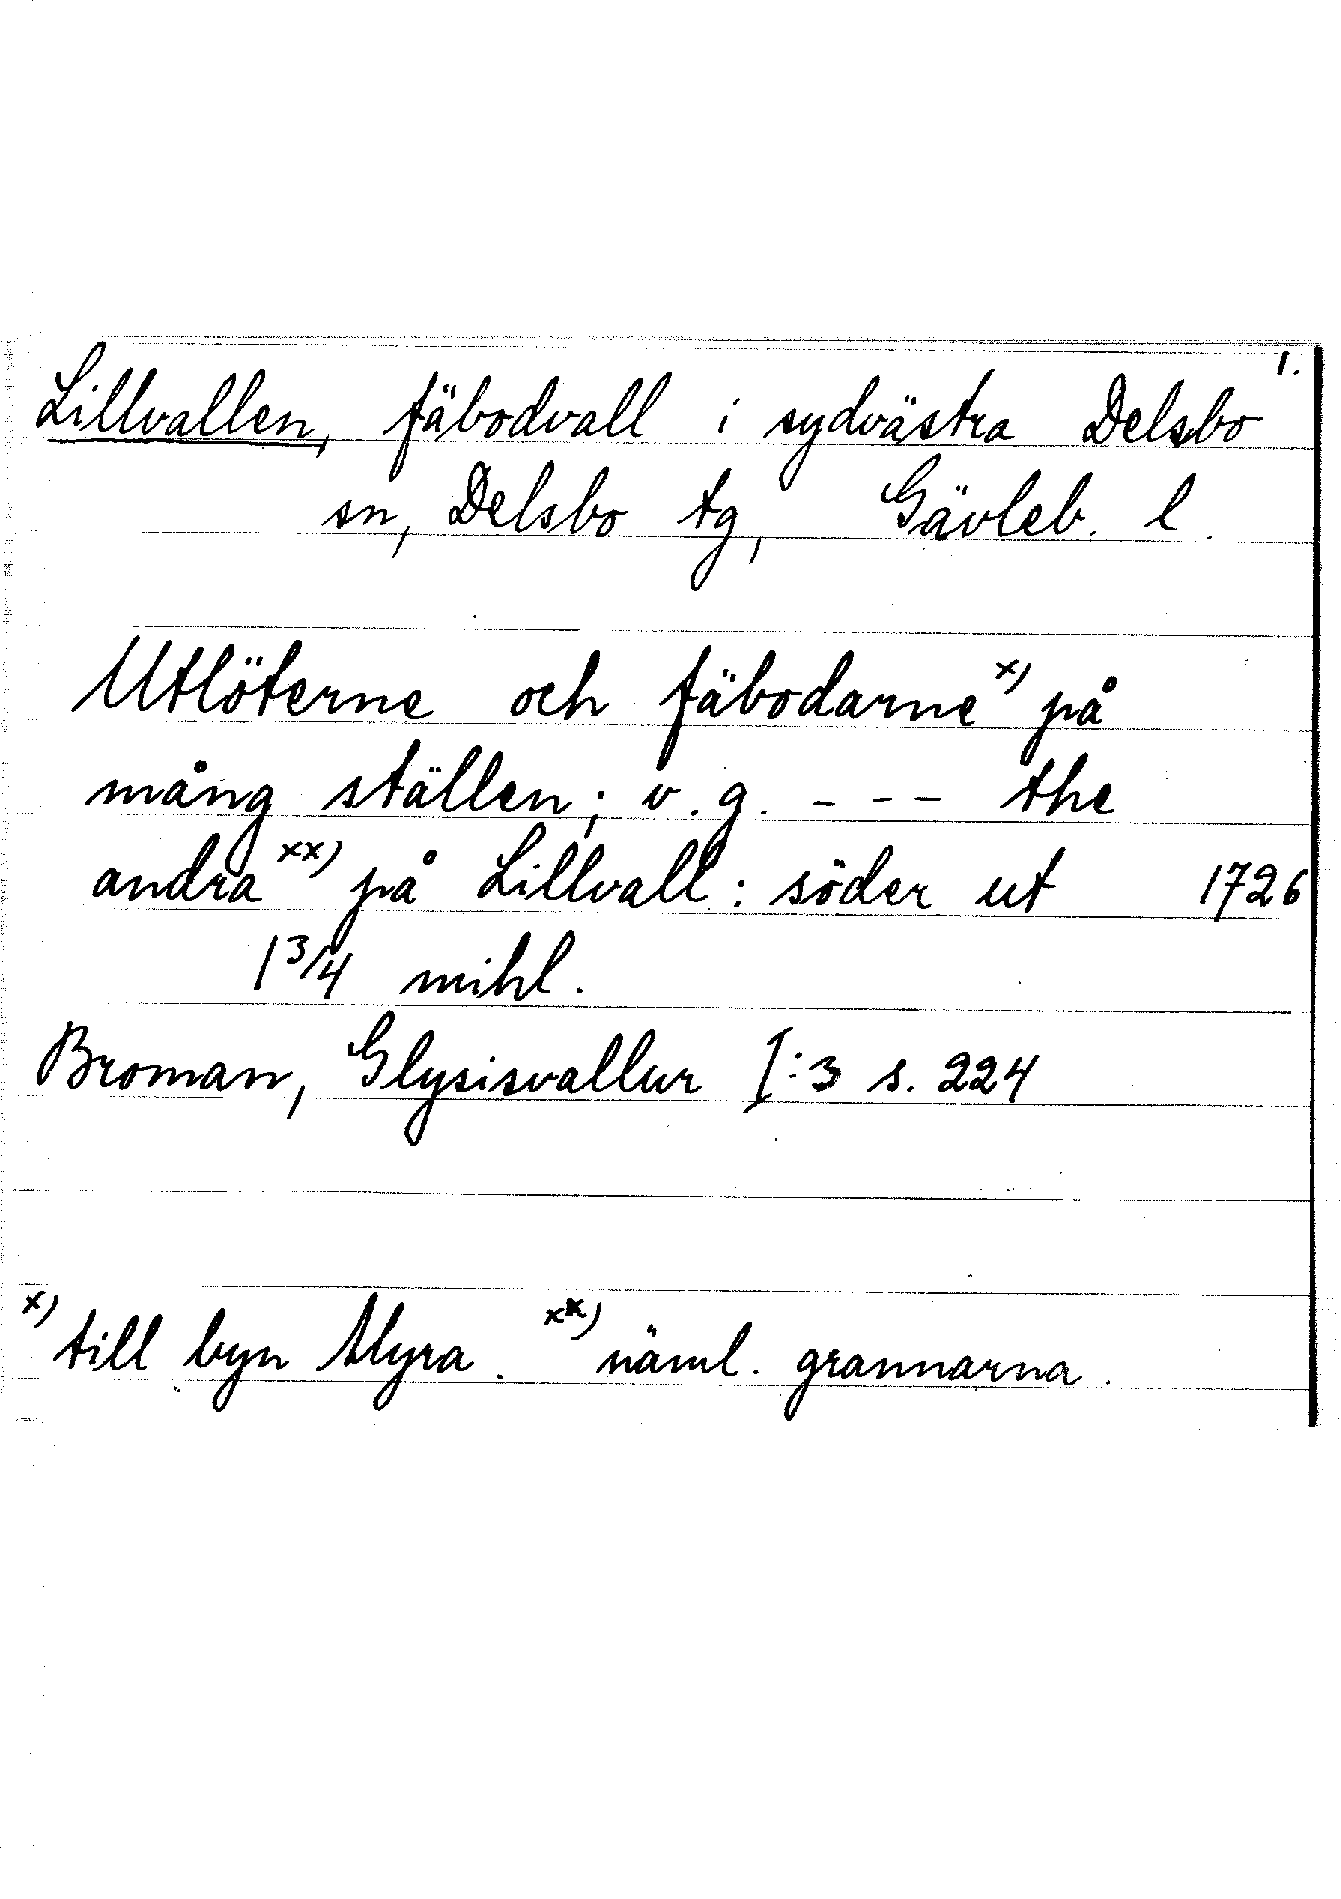 1.
Lillvallen, fäbodvall i sydvästra Delsbo
sn, Delsbo tg, Gävleb. l.
Utlöterne och fäbodarne x) på
mång ställen; v.g. - - - the
andra xx) på Lillvall: söder ut 1726
1 3/4 mihl.
Broman, Glysisvallur I:3 s. 224
x) till byn Myra. xx) näml. grannarna.